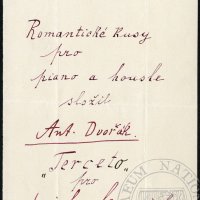 Romantické kusy
pro
piano a housle
složil
Ant. Dvořák.
"Terceto"
pro